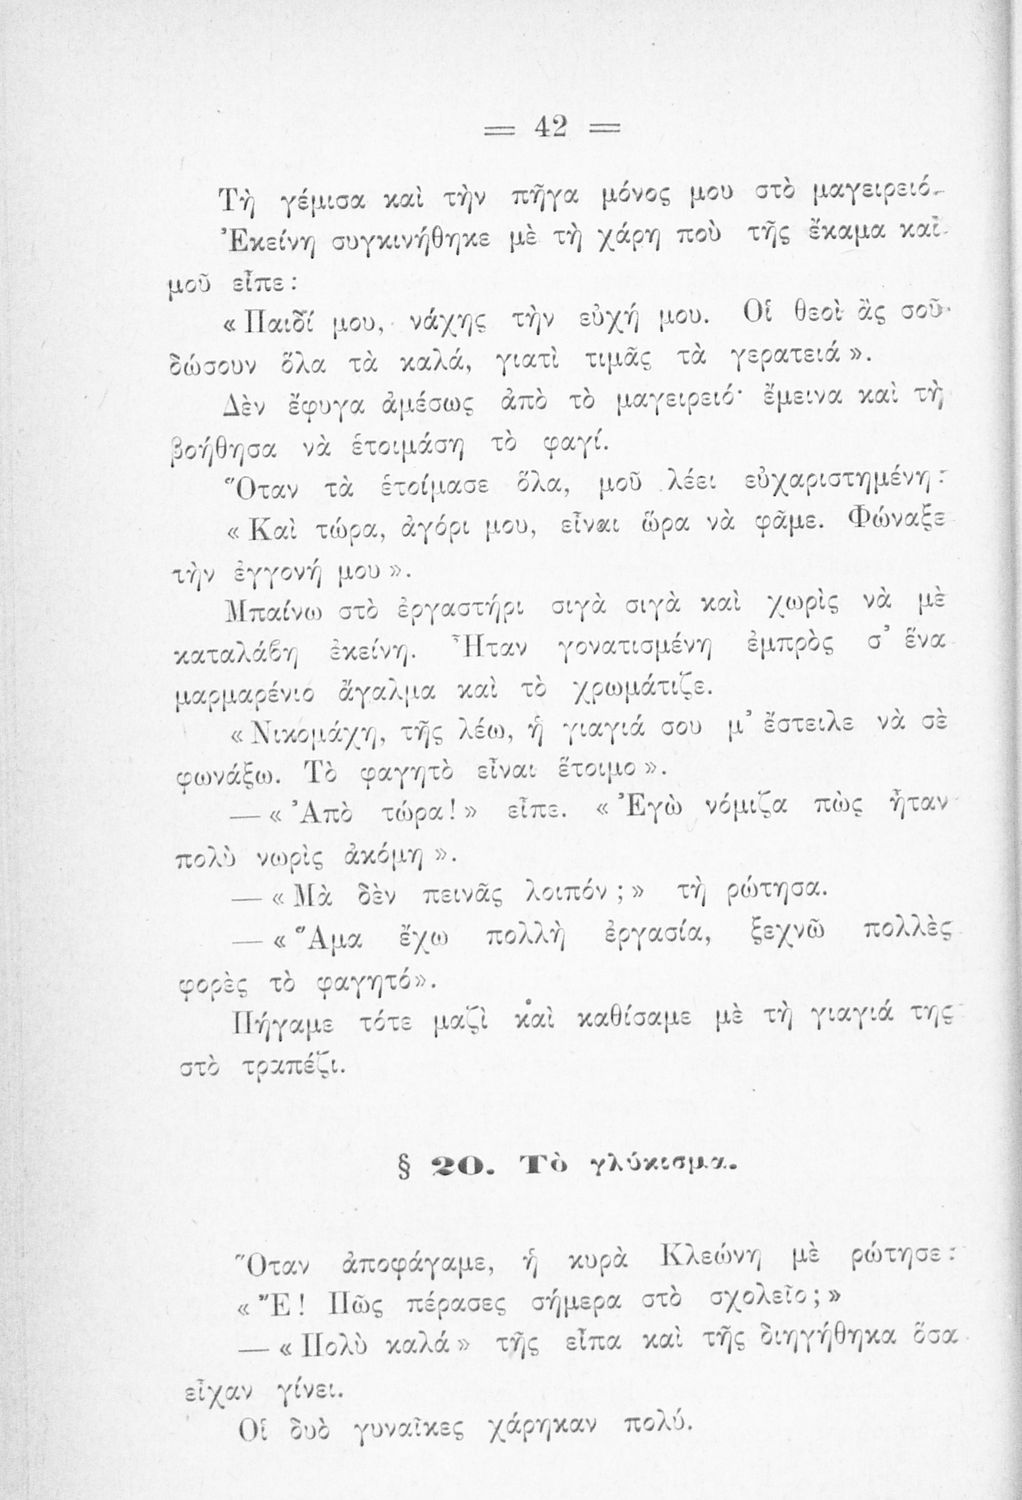 = 42 =
Τὴ γέμισα καὶ τὴν πῆγα μόνος μου στὸ μαγειρειό.
Ἐκείνη συγκινήθηκε μὲ τὴ χάρη ποὺ τῆς ἔκαμα καὶ
μοῦ εἶπε:
«Παιδί μου, νάχῃς τὴν εὐχή μου. Οἱ θεοὶ ἂς σοῦ
δώσουν ὅλα τὰ καλά, γιατὶ τιμᾶς τὰ γερατειά».
Δὲν ἔφυγα ἀμέσως ἀπὸ τὸ μαγειρειό· ἔμεινα καὶ τὴ
βοήθησα νὰ ἑτοιμάσῃ τὸ φαγί.
Ὅταν τὰ ἑτοίμασε ὅλα, μοῦ λέει εὐχαριστημένη:
«Καὶ τώρα, ἀγόρι μου, εἶναι ὥρα νὰ φᾶμε. Φώναξε
τὴν ἐγγονή μου».
Μπαίνω στὸ ἐργαστήρι σιγὰ σιγὰ καὶ χωρὶς νὰ μὲ
καταλάβη ἐκείνη. Ἦταν γονατισμένη ἐμπρὸς σ’ ἕνα
μαρμαρένιο ἄγαλμα καὶ τὸ χρωμάτιζε.
«Νικομάχη, τῆς λέω, ἡ γιαγιά σου μ’ ἔστειλε νὰ σὲ
φωνάξω. Τὸ φαγητὸ εἶναι ἕτοιμο».
— «Ἀπὸ τώρα!» εἶπε. «Ἐγὼ νόμιζα πὼς ἦταν
πολὺ νωρὶς ἀκόμη».
— «Μὰ δὲν πεινᾶς λοιπόν;» τὴ ρώτησα.
— «Ἅμα ἔχω πολλὴ ἐργασία, ξεχνῶ πολλὲς
φορὲς τὸ φαγητό».
Πήγαμε τότε μαζὶ καὶ καθίσαμε μὲ τὴ γιαγιά της
στὸ τραπέζι.
§ 20. Τὸ γλύκισμα.
Ὅταν ἀποφάγαμε, ἡ κυρὰ Κλεώνη μὲ ρώτησε:
«Ἔ! Πῶς πέρασες σήμερα στὸ σχολεῖο;»
— «Πολὺ καλά» τῆς εἶπα καὶ τῆς διηγήθηκα ὅσα
εἶχαν γίνει.
Οἱ δυὸ γυναῖκες χάρηκαν πολύ.